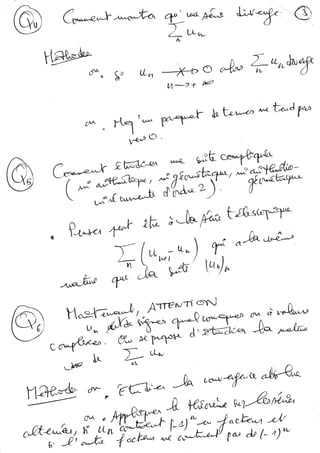 Q4 Comment montrer qu'une série diverge. ③
∑ un
n
Méthodes
ou . Si un -/-> 0 alors ∑ un diverge
n→+∞ n
ou . Mq 1 un paquet de termes ne tend pas
vers 0.
Q5 Comment étudier une suite compliquée
(ni arithmétique, ni géométrique, ni arithmético-
géométrique
ni récurrente d'ordre 2)
• Penser peut être à la série télescopique
∑ (un+1 - un) qui a la même
n
nature que la suite (un)n
Q6 Maintenant, ATTENTION
un est de signes quelconques ou à valeurs
complexes. On se propose d'étudier la nature
de ∑ un
n
Méthodes ou . Étudier la convergence absolue
ou . Appliquer le théorème sur les séries
alternées, si un contient (-1)^n en facteur et
si l'autre facteur ne contient pas de (-1)^n